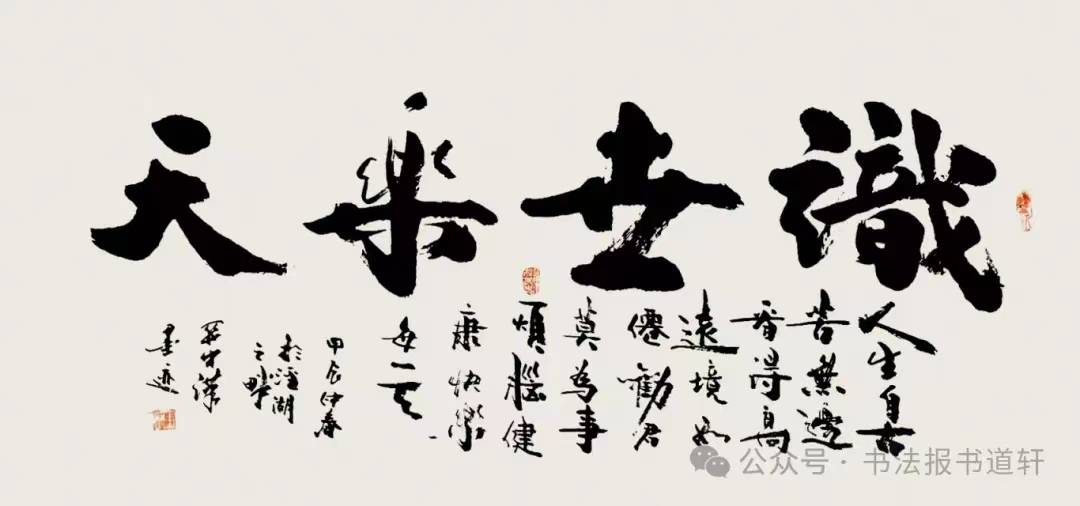 識世樂天
人生自古
苦無邊
看得高
遠境如
僊勸君
莫為事
煩惱健
康快樂
每一天
甲辰仲春
於湖
之畔
墨迹
公众号 · 书法报书道轩